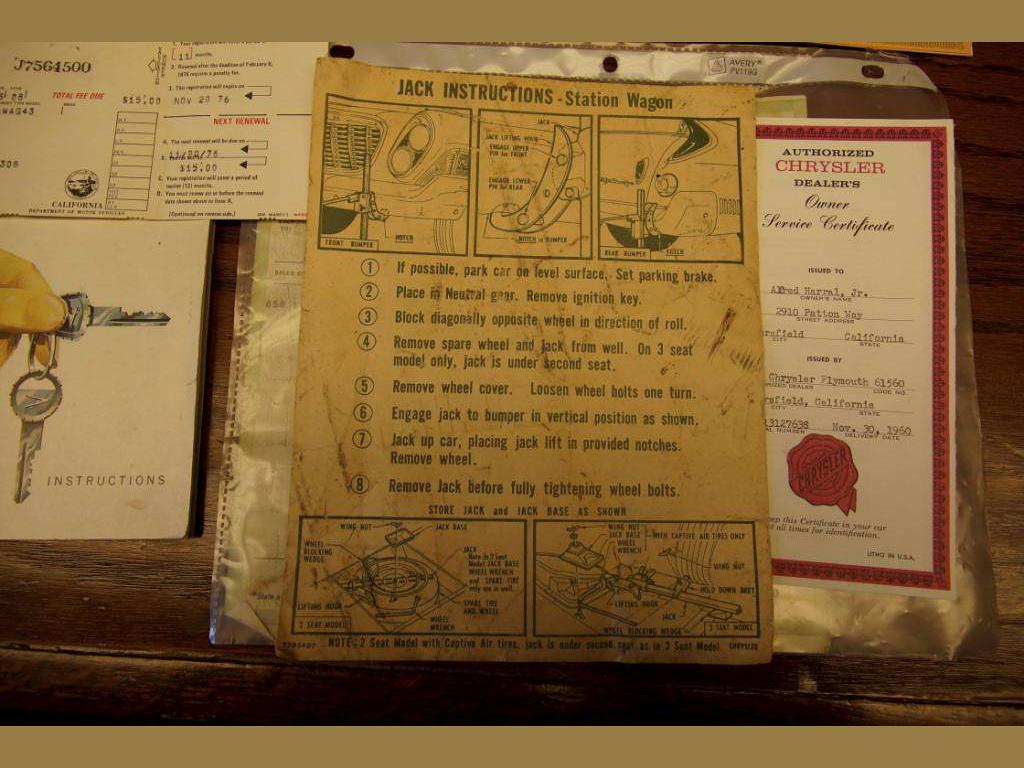 J7564500
TOTAL FEE DUE
$15.00
NOV 20 76
NEXT RENEWAL
11/20/76
$15.00
CALIFORNIA
DEPARTMENT OF MOTOR VEHICLES
(Continued on reverse side.)
INSTRUCTIONS
AVERY®
JACK INSTRUCTIONS - Station Wagon
JACK
JACK LIFTING HOOK
ENGAGE UPPER
PIN for FRONT
ENGAGE LOWER
PIN for REAR
FRONT BUMPER
NOTCH
NOTCH in BUMPER
REAR BUMPER
NOTCH
1 If possible, park car on level surface. Set parking brake.
2 Place in Neutral gear. Remove ignition key.
3 Block diagonally opposite wheel in direction of roll.
4 Remove spare wheel and jack from well. On 3 seat
model only, jack is under second seat.
5 Remove wheel cover. Loosen wheel bolts one turn.
6 Engage jack to bumper in vertical position as shown.
7 Jack up car, placing jack lift in provided notches.
Remove wheel.
8 Remove Jack before fully tightening wheel bolts.
STORE JACK and JACK BASE AS SHOWN
WING NUT
JACK BASE
WHEEL
BLOCKING
WEDGE
JACK
Note in 2 Seat
Model JACK BASE
WHEEL WRENCH
and SPARE TIRE
only are in well.
LIFTING HOOK
SPARE TIRE
AND WHEEL
WHEEL
WRENCH
2 SEAT MODEL
WING NUT
JACK BASE
WHEEL
WRENCH
WITH CAPTIVE AIR TIRES ONLY
WING NUT
HOLD DOWN BOLT
LIFTING HOOK
JACK
WHEEL BLOCKING WEDGE
3 SEAT MODEL
NOTE: 2 Seat Model with Captive Air tires, jack is under second seat as in 3 Seat Model. CHRYSLER
AUTHORIZED
CHRYSLER
DEALER'S
Owner
Service Certificate
ISSUED TO
Alfred Harral, Jr.
OWNER'S NAME
2910 Patton Way
STREET ADDRESS
rsfield California
CITY STATE
ISSUED BY
Chrysler Plymouth 61560
DEALER CODE NO.
rsfield, California
CITY STATE
3127638 Nov. 30, 1960
NUMBER DELIVERY DATE
CHRYSLER
this Certificate in your car
all times for identification.
LITHO IN U.S.A.